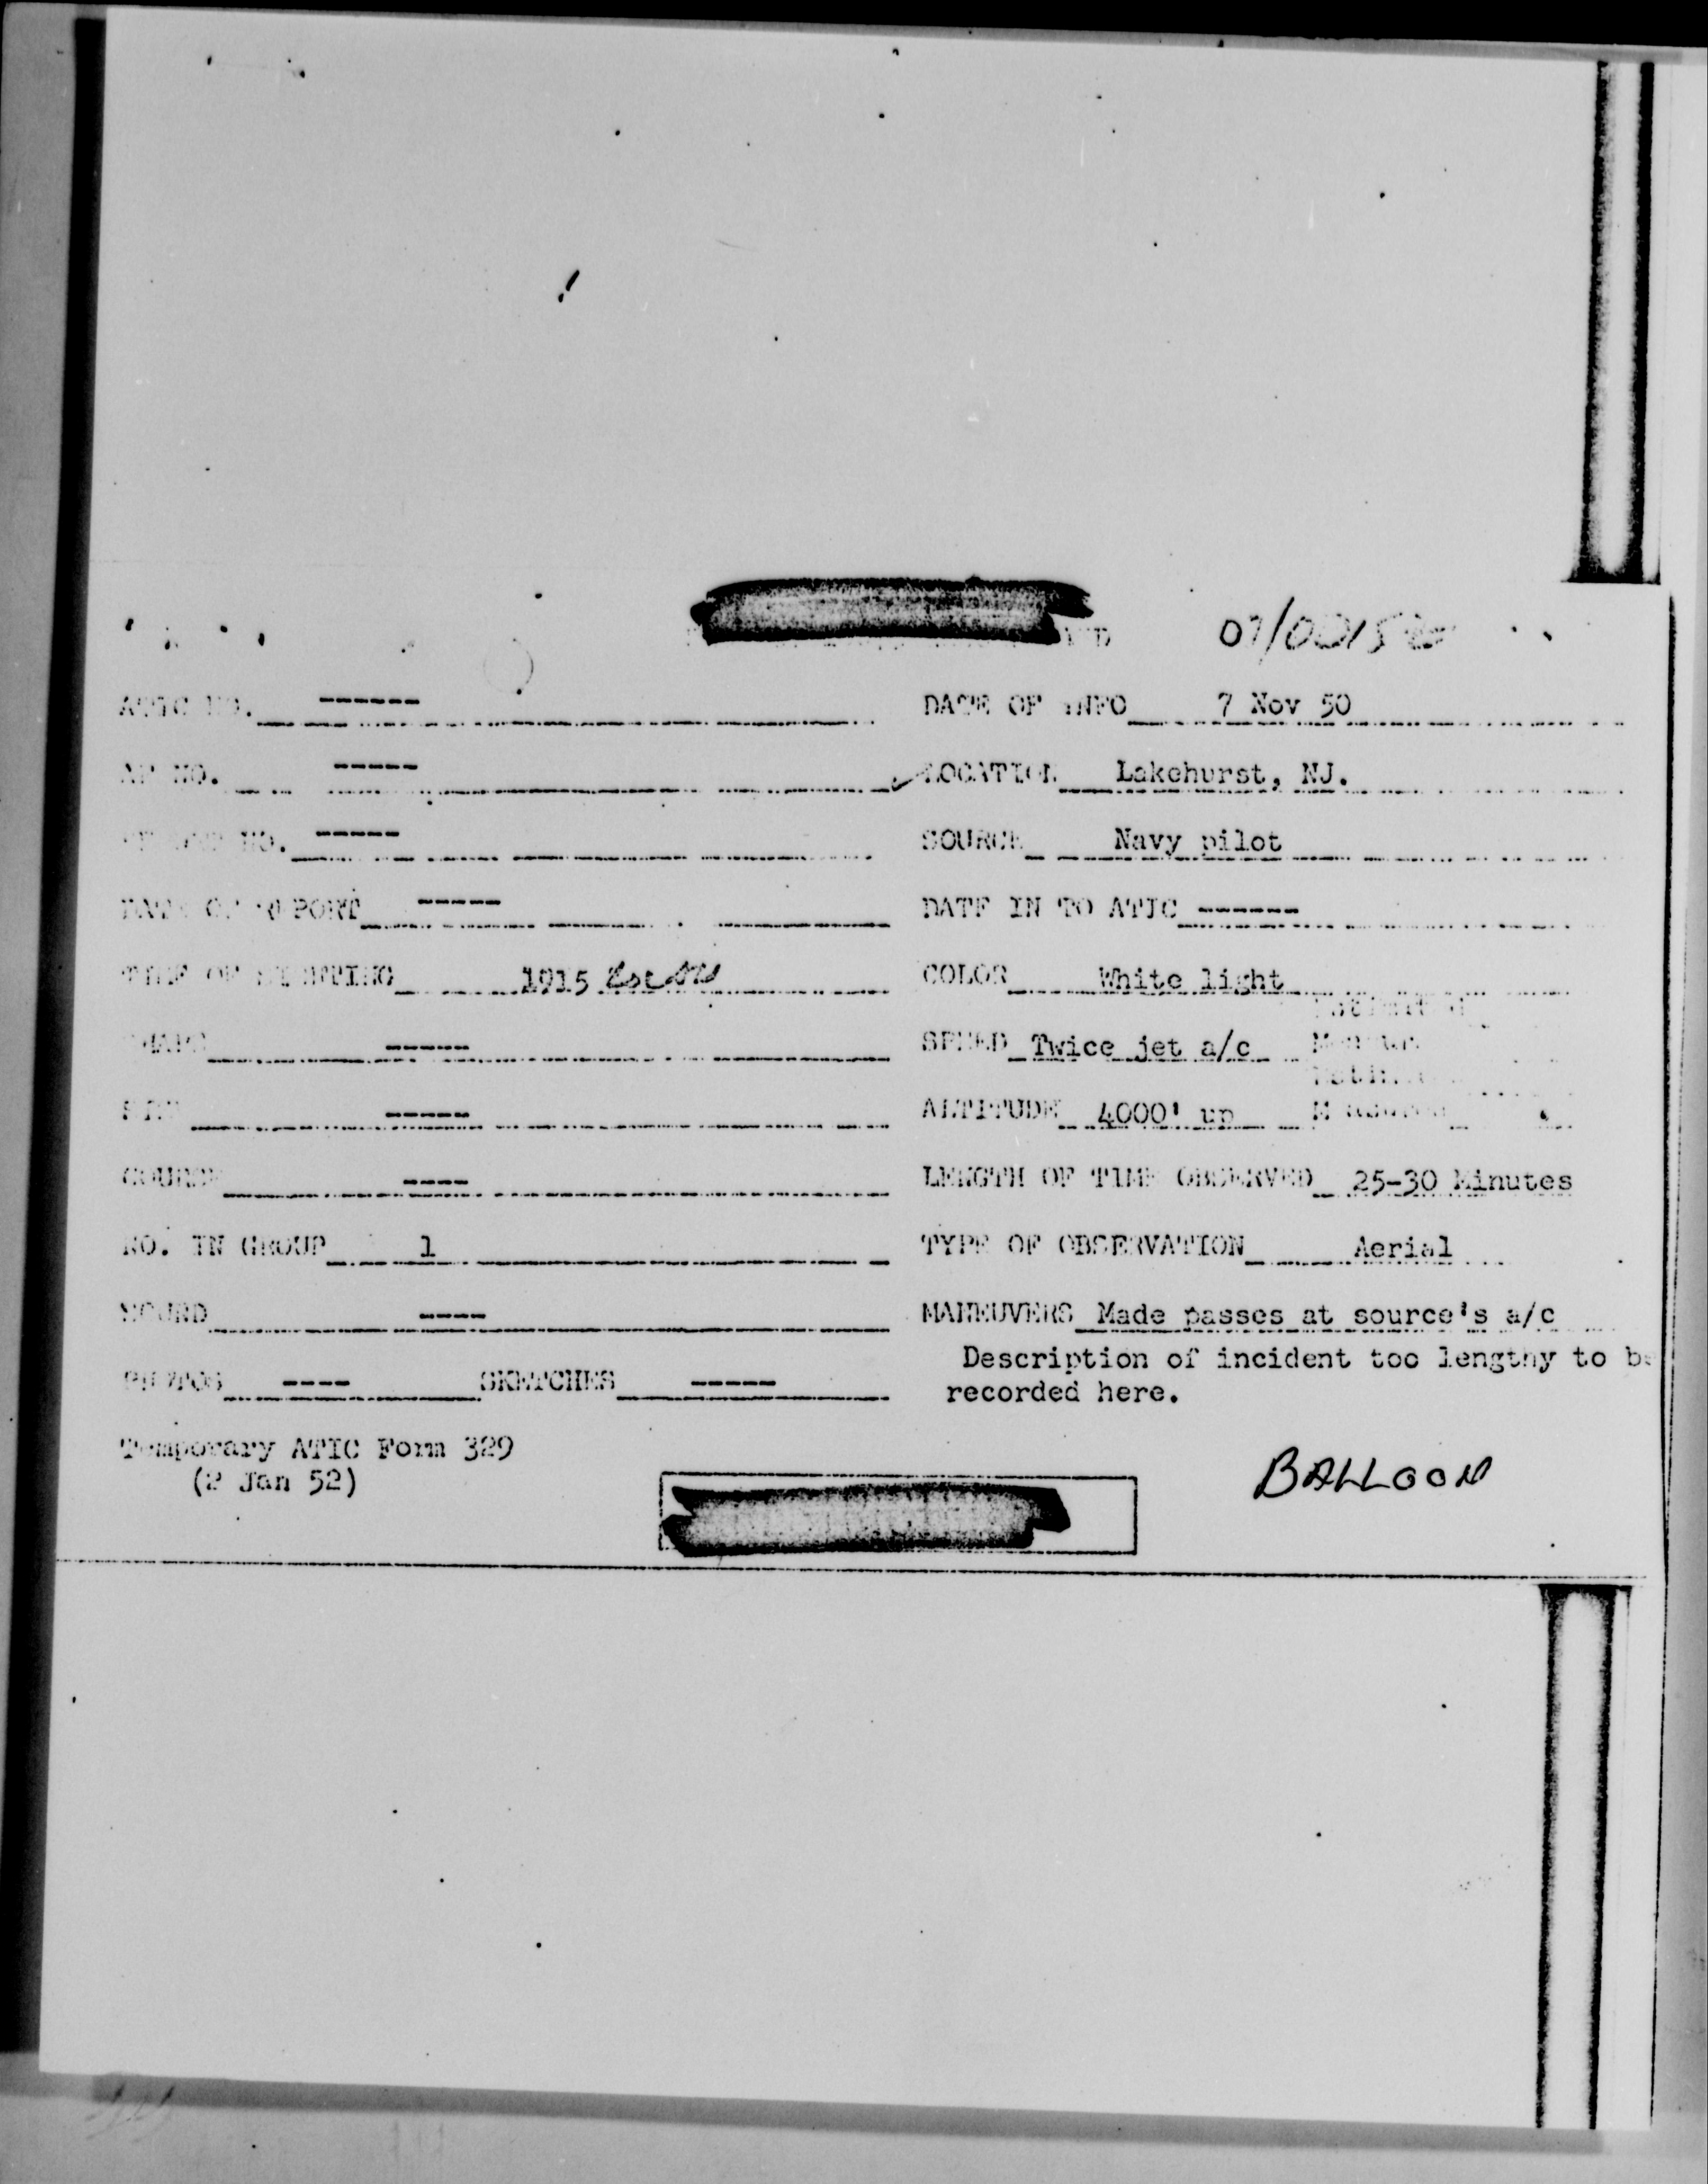 07/0015
NO. ------
DATE OF INFO 7 Nov 50
NO. -----
LOCATION Lakehurst, NJ.
NO. -----
SOURCE Navy pilot
DATE OF REPORT -----
DATE IN TO ATIC ------
TIME OF SIGHTING 1915
COLOR White light
SHAPE -----
SPEED Twice jet a/c
SIZE -----
ALTITUDE 4000' up
COURSE ----
LENGTH OF TIME OBSERVED 25-30 Minutes
NO. IN GROUP 1
TYPE OF OBSERVATION Aerial
SOUND ----
MANEUVERS Made passes at source's a/c
Description of incident too lengthy to be
PHOTOS ---- SKETCHES -----
recorded here.
Temporary ATIC Form 329
(2 Jan 52)
BALLOON